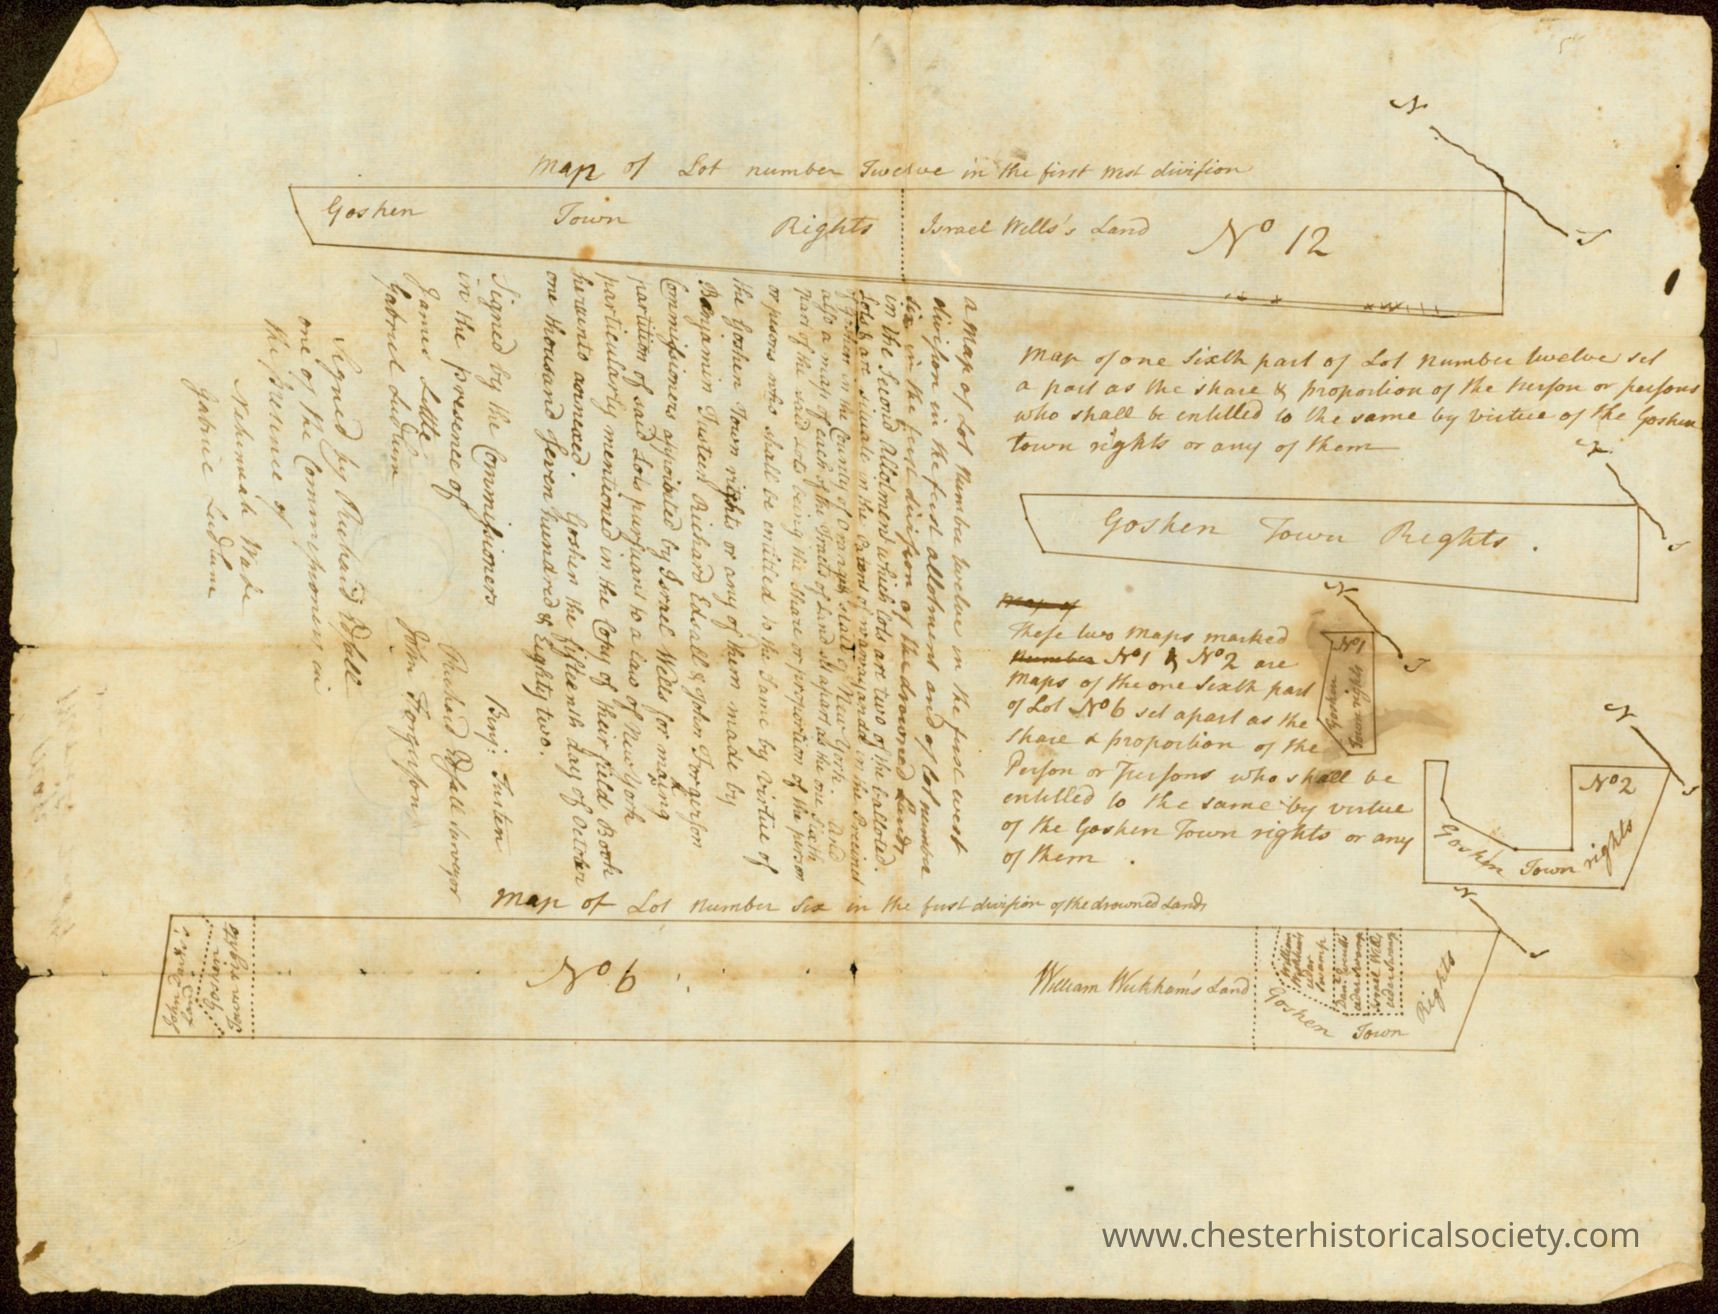 Map of Lot number Twelve in the first west division
Goshen Town Rights
Israel Wells's Land
No 12
N
S
Map of one Sixth part of Lot number twelve set
a part as the share & proportion of the Person or persons
who shall be entitled to the same by virtue of the Goshen
town rights or any of them
N
S
Goshen Town Rights.
Map of
These two Maps marked
Number No 1 & No 2 are
Maps of the one Sixth part
of Lot No 6 set apart as the
share & proportion of the
Person or Persons who shall be
entitled to the same by virtue
of the Goshen Town rights or any
of them.
N
S
No 1
Goshen
Town rights
N
S
No 2
Goshen Town rights
a Map of Lot Number twelve in the first west
division in the first allotment and of lot number
six in the first division of the drowned Lands
in the Second Allotment which Lots are two of the balloted
Lots & are Situate in the Patent of wawayanda in the Precinct
of Goshen in the County of Orange & State of New York. and
also a map of each of the Tracts of Land set apart as the one Sixth
part of the said Lots being the Share or proportion of the person
or persons who shall be entitled to the Same by Virtue of
the Goshen Town rights or any of them made by
Benjamin Tusteen Richard Edsall & John Forgerson
Commissioners appointed by Israel Wells for making
partition of said Lots pursuant to a Law of New York
particularly mentioned in the Copy of their field Book
hereunto annexed. Goshen the fifteenth day of October
one thousand Seven hundred & Eighty two.
Signed by the Commissioners
in the presence of
James Little
Gabriel Ludlum
Benj: Tusten
Richard Edsall Surveyor
John Forgerson
Signed by Richard Edsall
one of the Commissioners in
the presence of
Gabriel Ludlum
Map of Lot number Six in the first division of the drowned Lands
N
S
Goshen
Town rights
No 6
William Wickham's Land
William
Wickham's
cedar
swamp
cedar swamp
Israel Wells
cedar swamp
Goshen Town Rights
www.chesterhistoricalsociety.com